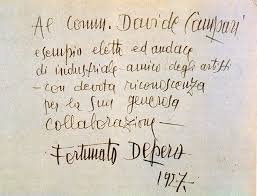 Al Comm. Davide Campari
esempio eletto ed audace
di industriale amico degli artisti
– con devota riconoscenza
per la Sua generosa
collaborazione –
Fortunato Depero
1927.